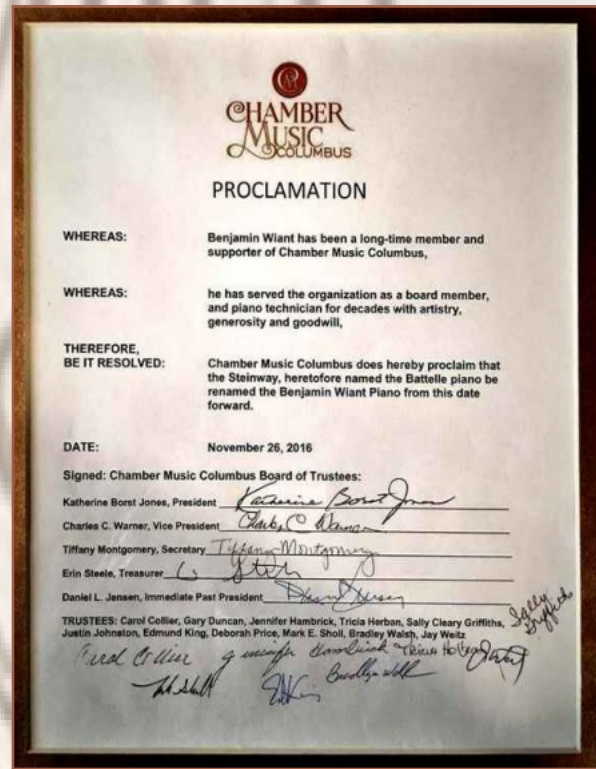 CM
CHAMBER
MUSIC
COLUMBUS
PROCLAMATION
WHEREAS: Benjamin Wiant has been a long-time member and
supporter of Chamber Music Columbus,
WHEREAS: he has served the organization as a board member,
and piano technician for decades with artistry,
generosity and goodwill,
THEREFORE,
BE IT RESOLVED: Chamber Music Columbus does hereby proclaim that
the Steinway, heretofore named the Battelle piano be
renamed the Benjamin Wiant Piano from this date
forward.
DATE: November 26, 2016
Signed: Chamber Music Columbus Board of Trustees:
Katherine Borst Jones, President Katherine Borst Jones
Charles C. Warner, Vice President Charles C Warner
Tiffany Montgomery, Secretary Tiffany Montgomery
Erin Steele, Treasurer
Daniel L. Jensen, Immediate Past President
TRUSTEES: Carol Collier, Gary Duncan, Jennifer Hambrick, Tricia Herban, Sally Cleary Griffiths,
Justin Johnston, Edmund King, Deborah Price, Mark E. Sholl, Bradley Walsh, Jay Weitz
Sally
Griffiths
Carol Collier Jennifer Hambrick Tricia Herban